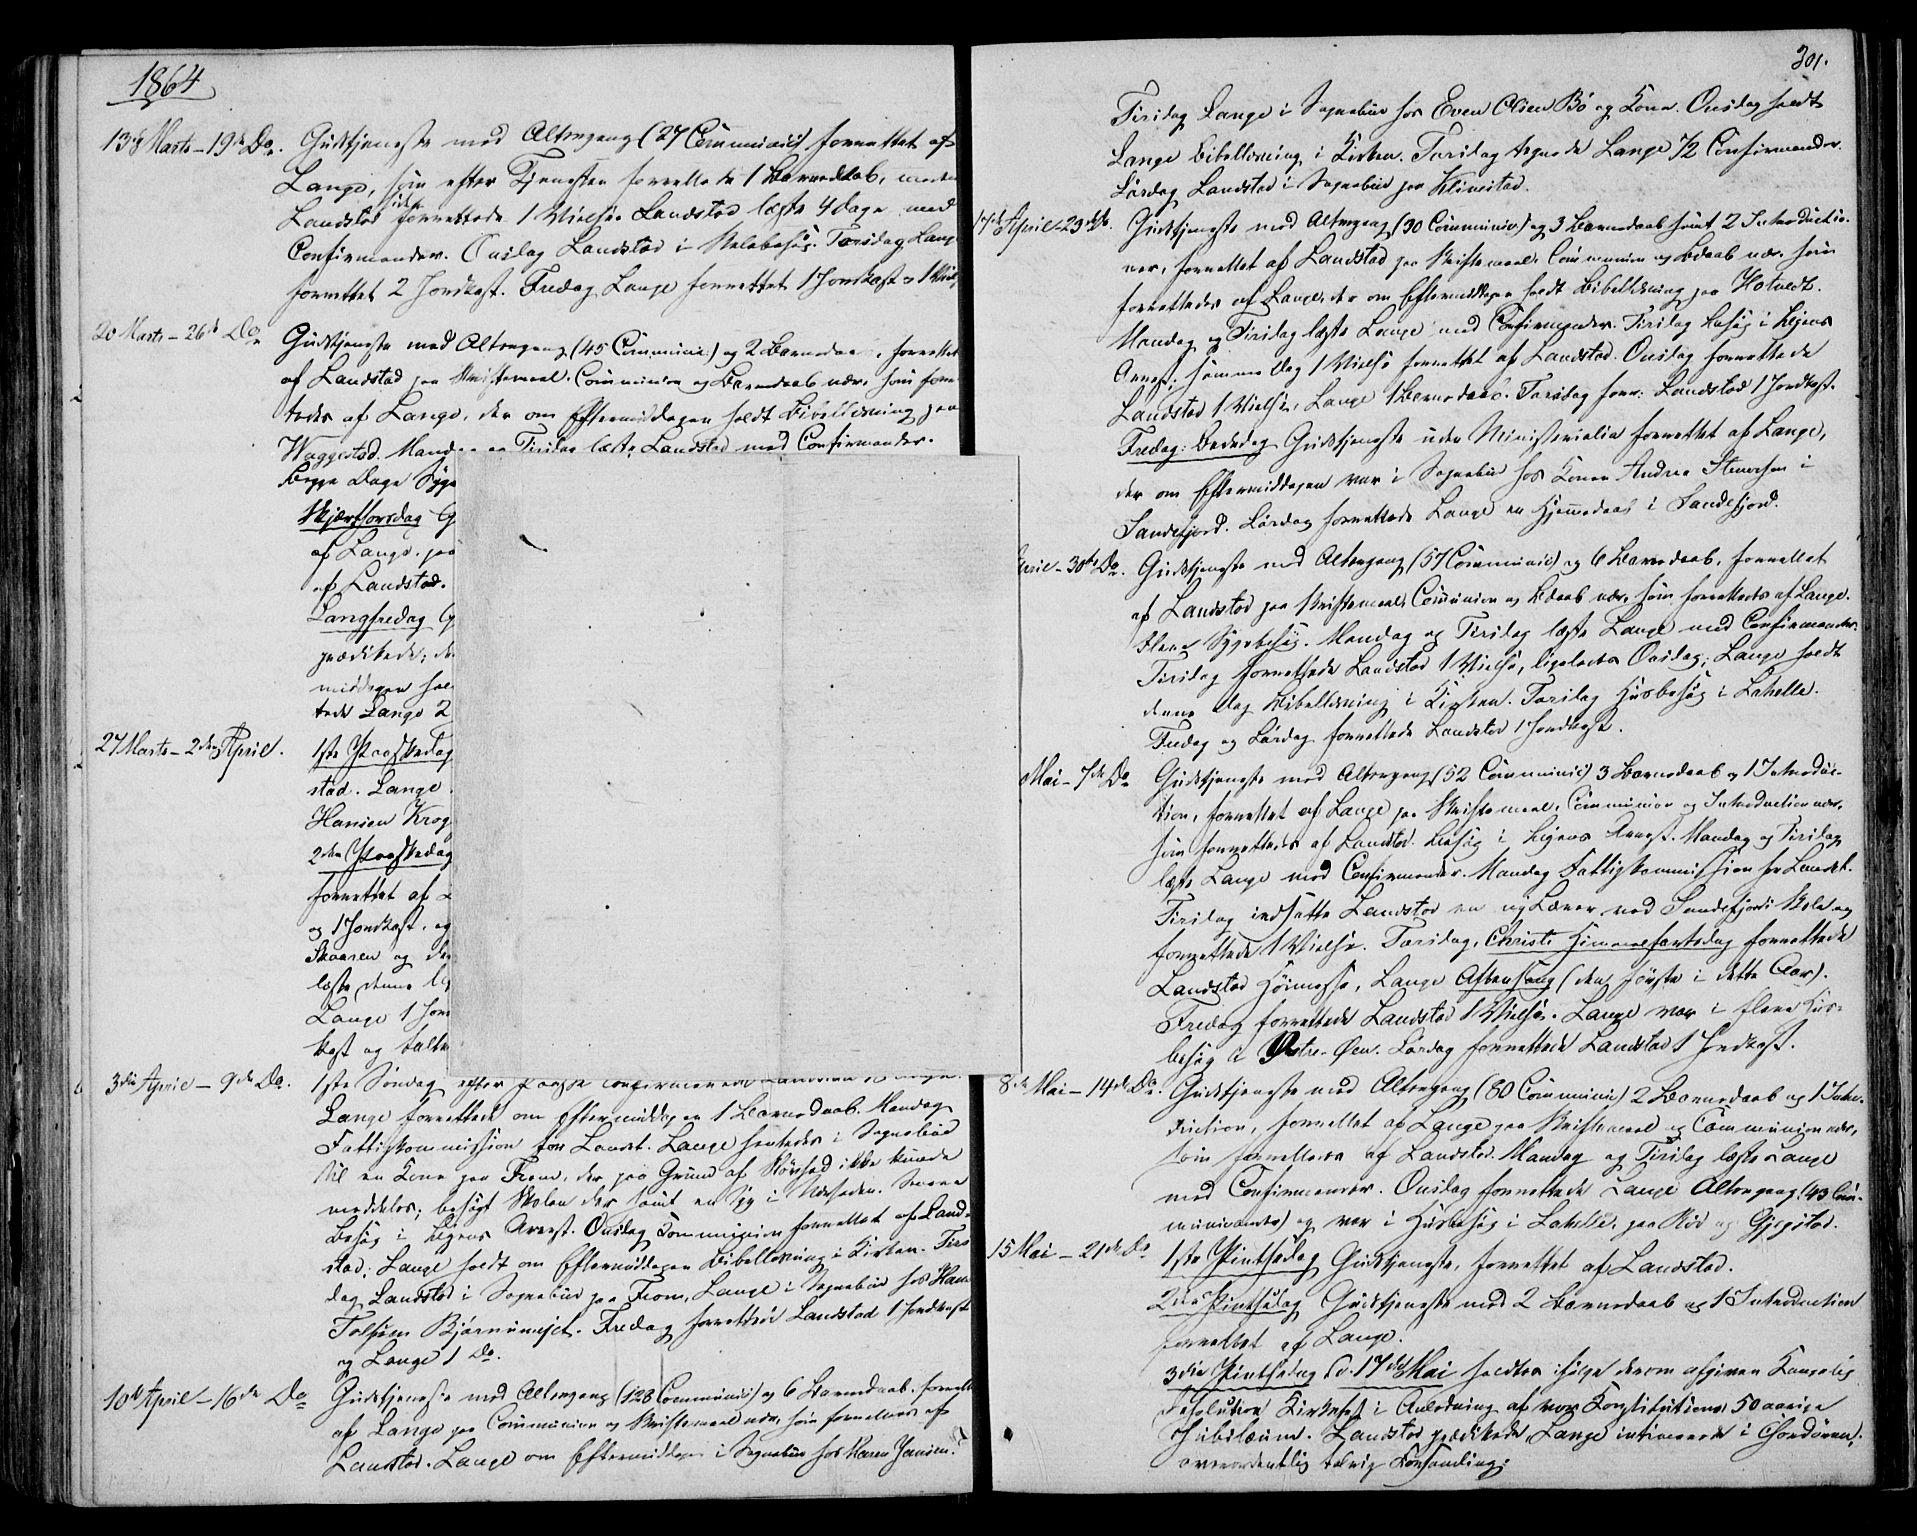 1864
13de Marts – 19de Do. Gudstjeneste med Altergang (27 Communic:) forrettet af
Lange, som efter Tjenesten forrettede 1 Barnedaab, meden
Landstad forrettede 1 Vielse. Landstad læste 4 Dage med
Confirmander. Onsdag Landstad i Skolebesøg. Torsdag Lange
forrettet 2 Jordkast. Fredag Lange forrettet 1 Jordkast o 1 Viels
20 Marts – 26de Do. Gudstjeneste med Altergang (45 Communic:) og 2 Barnedaab, forrettet
af Landstad paa Skriftemaal, Communion og Barnedaab nær, som forret-
tedes af Lange, der om Eftermiddagen holdt Bibellæsning paa
Waggestad. Mandag og Tirsdag læste Landstad med Confirmander.
Begge Dage Syge
Skjærthorsdag G
af Lange, paa
af Landstad.
Langfredag G
prædikede; de
middagen hol
tede Lange 2
27 Marts – 2den April. 1ste Paaskedag
stad. Lange
Hansen Krog
2den Paaskedag
forrettet af L
og 1 Jordkast, og
Skaaren og de
læste denne
Lange 1 Jor
kast og
3die April – 9de Do. 1ste Søndag efter Paaske confirmerede Landstad
Lange forrettede om Eftermiddagen 1 Barnedaab. Mandag
Fattigkommission for Landet. Lange hentedes i Sognebud
til en Kone paa Fram, der paa Grund af Sløvhed ikke kunde
meddeles; besøgt Skolen der samt en Syg i Nærheden. Samme
Besøg i Byens Arrest. Onsdag Communion forrettet af Land-
stad; Lange holdt om Eftermiddagen Bibellæsning i Kirken. Tors
dag Landstad i Sognebud paa Fram, Lange i Sognebud hos Hans
Tolfsen Bjørnumejet. Fredag forrettede Landstad 1 Jordkast
og Lange 1 Do.
10de April – 16de Do Gudstjeneste med Altergang (128 Communic:) og 6 Barnedaab, forrettet
af Lange paa Communion og Skriftemaal nær, som forrettedes af
Landstad. Lange om Eftermiddagen i Sognebud hos Karen Jensen.
301.
Tirsdag Lange i Sognebud hos Even Olsen Bø og Kone. Onsdag holdt
Lange Bibellæsning i Kirken. Torsdag tegnede Lange 72 Confirmander.
Lørdag Landstad i Sognebud paa Klinestad.
17de April – 23de Do. Gudstjeneste med Altergang (30 Communic:) og 3 Barnedaab samt 2 Introductio-
ner, forrettet af Landstad paa Skriftemaal, Communion og Daab nær, som
forrettedes af Lange, der om Eftermiddagen holdt Bibellæsning paa Hotvedt.
Mandag og Tirsdag læste Lange med Confirmander. Tirsdag Besøg i Byens
Arrest; samme Dag 1 Vielse forrettet af Landstad. Onsdag forrettede
Landstad 1 Vielse, Lange 1 Barnedaab. Torsdag forr: Landstad 1 Jordkast.
Fredag: Bededag Gudstjeneste uden Ministerialia forrettet af Lange,
der om Eftermiddagen var i Sognebud hos Konen Andrea i
Sandefjord. Lørdag forrettede Lange en Hjemmedaab i Sandefjord.
April – 30te Do. Gudstjeneste med Altergang (57 Communic:) og 6 Barnedaab, forrettet
af Landstad paa Skriftemaal, Communion og Daab nær, som forrettedes af Lange.
Flere Sygebesøg. Mandag og Tirsdag læste Lange med Confirmander.
Tirsdag forrettede Landstad 1 Vielse, ligeledes Onsdag; Lange holdt
denne Dag Bibellæsning i Kirken. Torsdag Husbesøg i Lahelle.
Fredag og Lørdag forrettede Landstad 1 Jordkast.
Mai – 7de Do Gudstjeneste med Altergang (52 Communic:) 3 Barnedaab og 1 Introduc-
tion, forrettet af Lange paa Skriftemaal, Communion og Introduction nær,
som forrettedes af Landstad. Besøg i Byens Arrest. Mandag og Tirsdag
læste Lange med Confirmander. Mandag Fattigkommission for Landet.
Tirsdag indsatte Landstad en ny Lærer ved Sandefjords Skole og
forrettede 1 Vielse. Torsdag, Christi Himmelfartsdag forrettede
Landstad Høimesse, Lange Aftensang (den første i dette Aar).
Fredag forrettede Landstad 1 Vielse. Lange var i flere Hus-
besøg a Østre-Øen. Lørdag forrettede Landstad 1 Jordkast.
8de Mai – 14de Do. Gudstjeneste med Altergang (80 Communic:) 2 Barnedaab og 1 Intro-
duction, forrettet af Lange paa Skriftemaal og Communion nær,
som forrettedes af Landstad. Mandag og Tirsdag læste Lange
med Confirmander. Onsdag forrettede Lange Altergang (43 Com-
municanter) og var i Husbesøg i Lahelle, paa Rød og Gjøgstad.
15 Mai – 21de Do 1ste Pintsedag Gudstjeneste, forrettet af Landstad.
2den Pintsedag Gudstjeneste med 2 Barnedaab og 1 Introduction
forrettet af Lange.
3die Pintsedag d. 17de Mai holdtes ifølge derom afgiven Kongelig
Resolution Kirkefest i Anledning af vor Constitutions 50 aarige
Jubilæum. Landstad prædikede, Lange intonerede i Chordøren;
overordentlig talrig Forsamling.